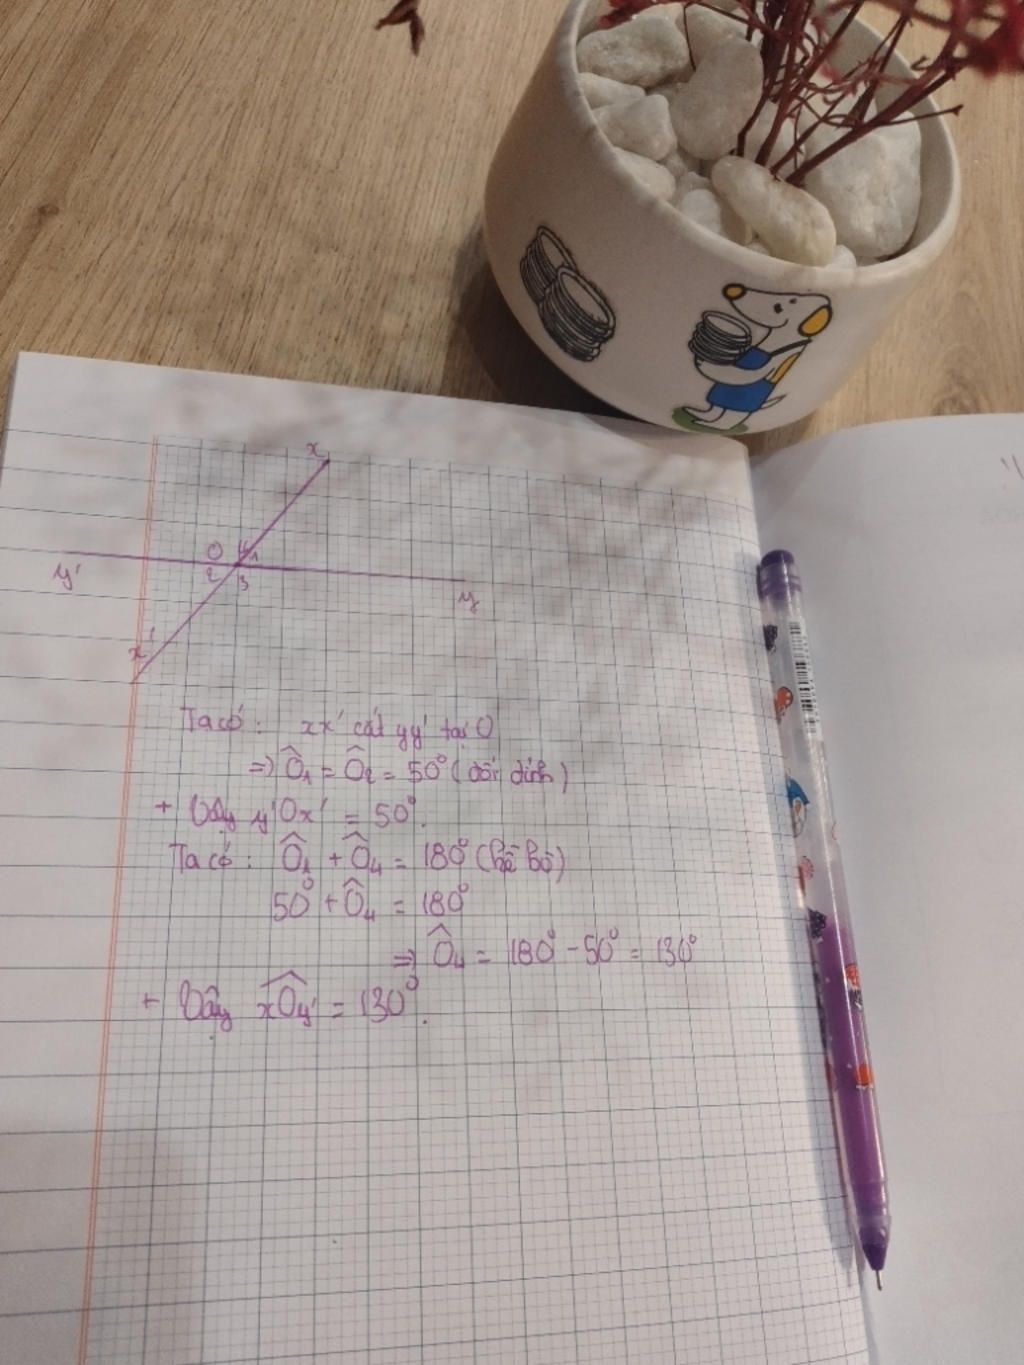 x
O 4 1
y' 2 3
y
x'
Ta có: xx' cắt yy' tại O
=> Ô₁ = Ô₂ = 50° (đối đỉnh)
+ Vậy y'Ox' = 50°.
Ta có: Ô₁ + Ô₄ = 180° (kề bù)
50° + Ô₄ = 180°
=> Ô₄ = 180° - 50° = 130°
+ Vậy xOy' = 130°.